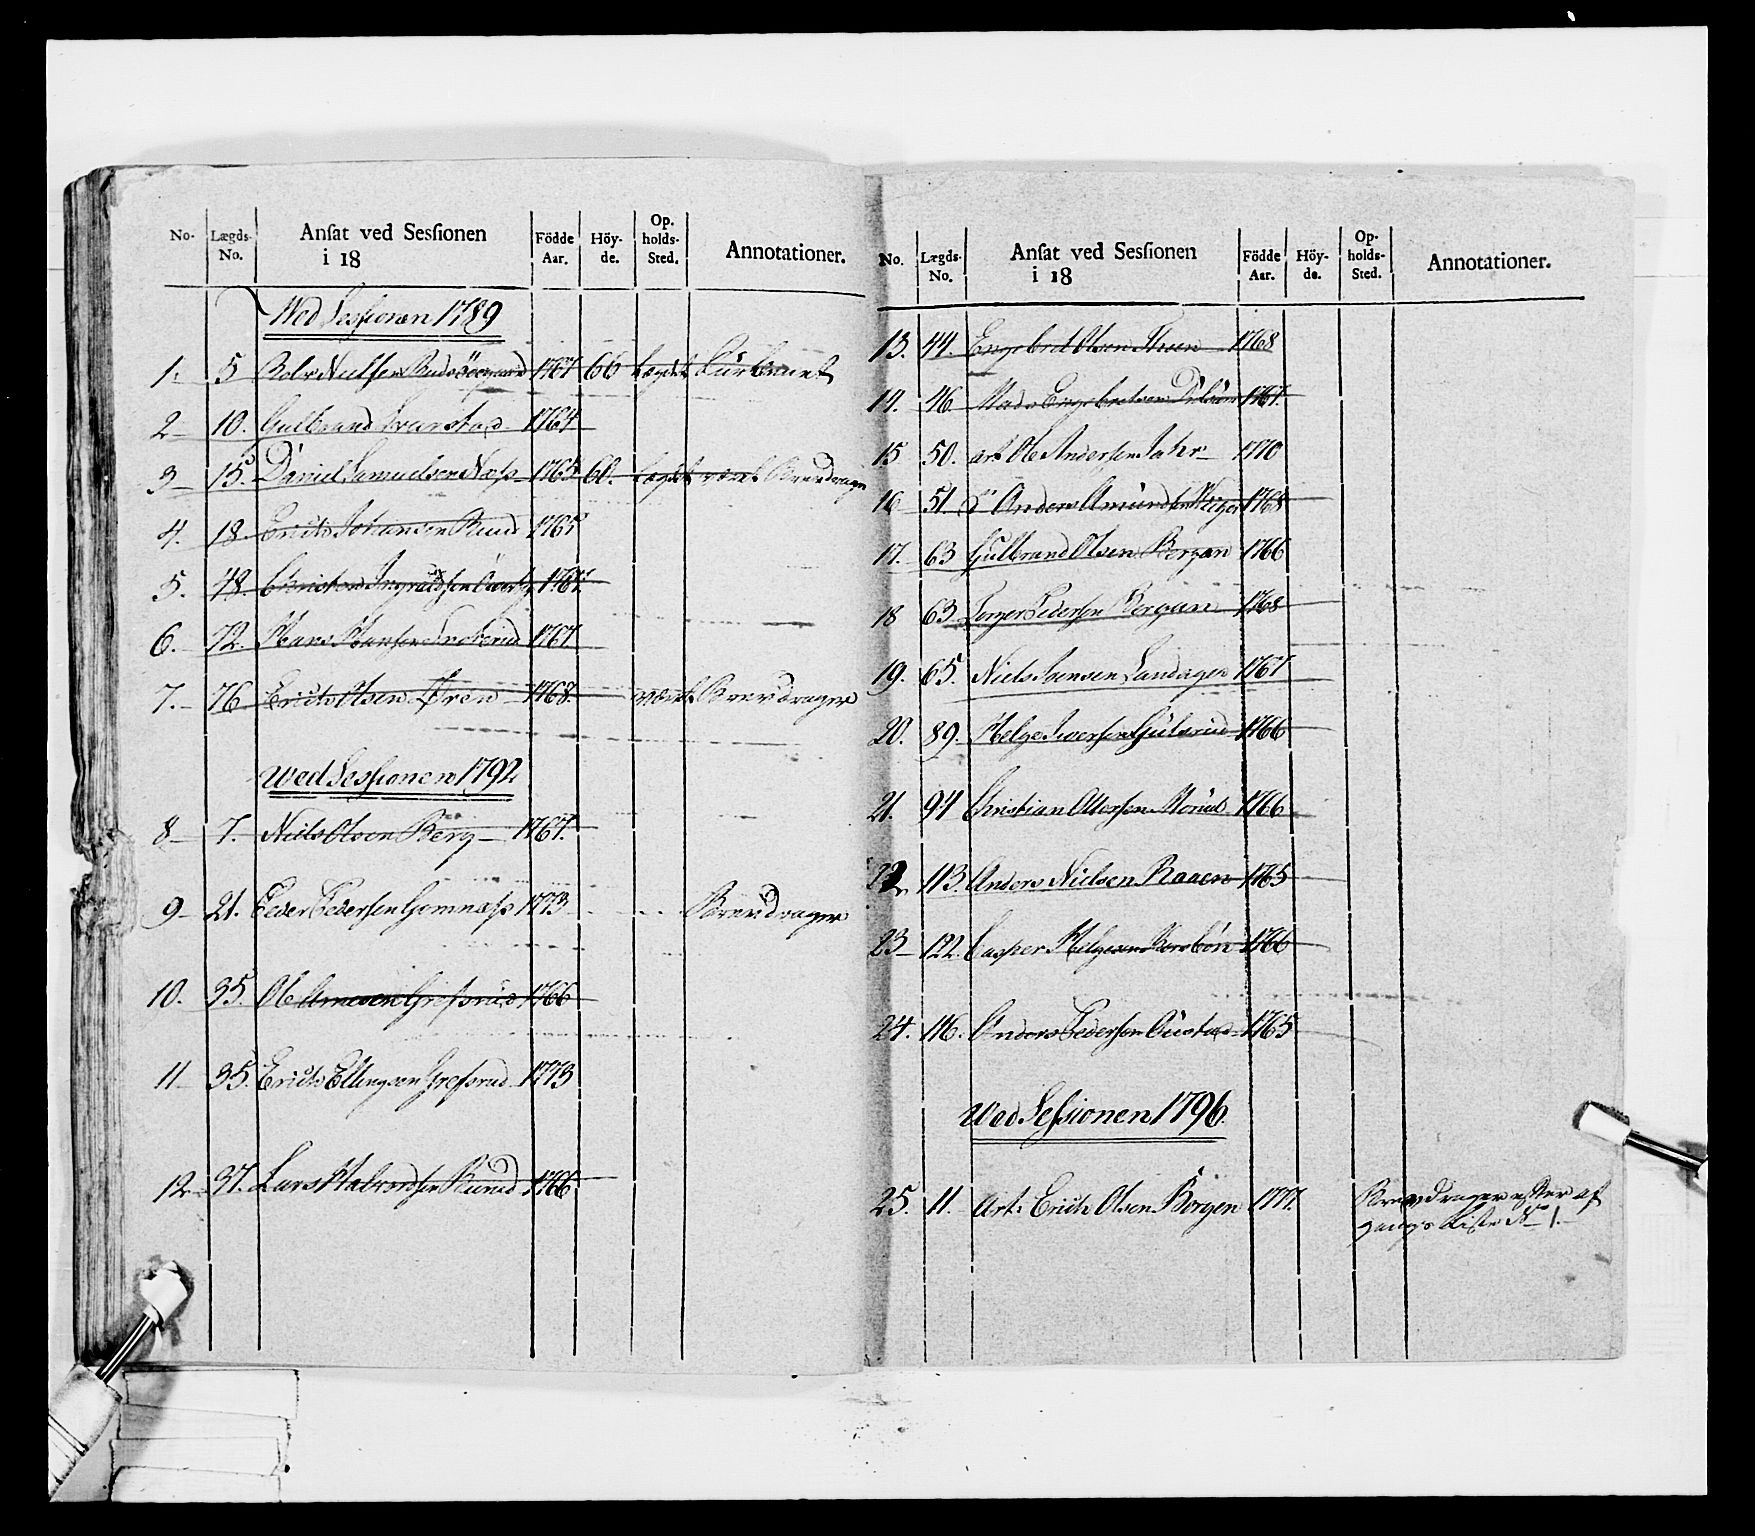 No. Lægds-No. Ansat ved Sessionen i 18 Födde Aar. Höyde. Opholds-Sted. Annotationer.
Ved Sessionen 1789
1. 5 Rolv Nielsen 1767 66 Lægdet
2 10. Gulbrand 1764
3 15. Daniel Samuelsen Næss 1765 60. Lægdet Brevdrager
4. 18. Erich Johansen Ruud 1765
5. 48. Christen 1767.
6. 72. Hans Hansen 1767
7. 76 Erich Olsen Øren 1768. Brevdrager
Ved Sessionen 1792
8 7. Niels Olsen Berg 1767.
9 21. Peder Pedersen Gomnæss 1773 Brevdrager
10. 35. Ole Arnesen Gresrud 1766
11 35. Erich Ellingsen Gresrud 1773
12 37. Lars Halvordsen Ruud 1766
No. Lægds-No. Ansat ved Sessionen i 18 Födde Aar. Höyde. Opholds-Sted. Annotationer.
13. 44. Engebret Olsen 1768
14. 46 Mads Engebretsen 1767.
15 50. art. Ole Andersen Jahr 1770
16 51 Anders Amundsen 1768
17. 63 Gulbrand Olsen Bergan 1766
18 63 Pedersen Bergan 1768
19. 65. Niels Jensen 1767
20. 89. Helge Iversen 1766
21. 94 Christian 1766
22 113. Anders Nielsen Raaen 1765
23 122. Casper Helgesen 1766
24. 116. Anders Pedersen 1765
Ved Sessionen 1796.
25. 11. Art: Erich Olsen Borgen 1777. Brevdrager efter af
gangs Liste No 1.